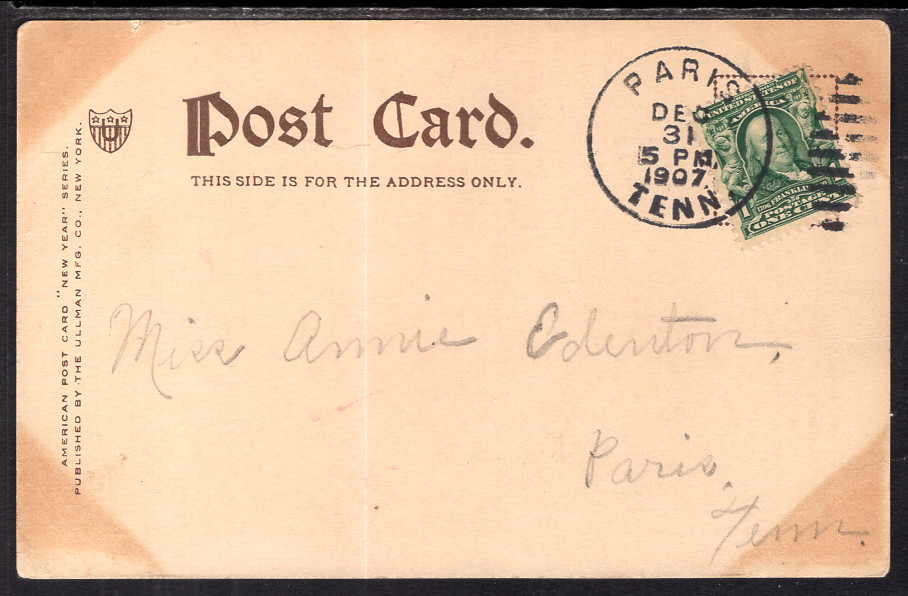 Post Card.
THIS SIDE IS FOR THE ADDRESS ONLY.
AMERICAN POST CARD "NEW YEAR" SERIES.
PUBLISHED BY THE ULLMAN MFG. CO., NEW YORK.
U
PARIS
DEC
31
5 PM
1907
TENN.
UNITED STATES OF
AMERICA
FRANKLIN
POSTAGE
1 ONE CENT
Miss Annie Edenton,
Paris,
Tenn.